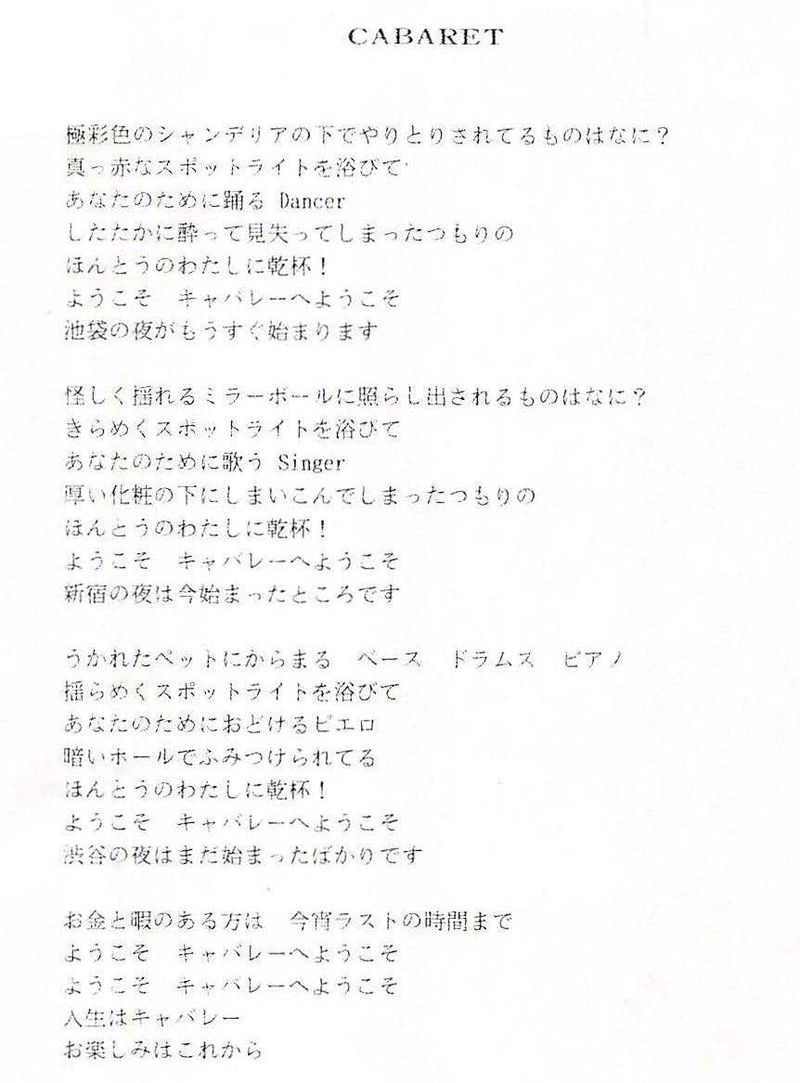 CABARET
極彩色のシャンデリアの下でやりとりされてるものはなに？
真っ赤なスポットライトを浴びて
あなたのために踊る Dancer
したたかに酔って見失ってしまったつもりの
ほんとうのわたしに乾杯！
ようこそ　キャバレーへようこそ
池袋の夜がもうすぐ始まります
怪しく揺れるミラーボールに照らし出されるものはなに？
きらめくスポットライトを浴びて
あなたのために歌う Singer
厚い化粧の下にしまいこんでしまったつもりの
ほんとうのわたしに乾杯！
ようこそ　キャバレーへようこそ
新宿の夜は今始まったところです
うかれたペットにからまる　ベース　ドラムス　ピアノ
揺らめくスポットライトを浴びて
あなたのためにおどけるピエロ
暗いホールでふみつけられてる
ほんとうのわたしに乾杯！
ようこそ　キャバレーへようこそ
渋谷の夜はまだ始まったばかりです
お金と暇のある方は　今宵ラストの時間まで
ようこそ　キャバレーへようこそ
ようこそ　キャバレーへようこそ
人生はキャバレー
お楽しみはこれから